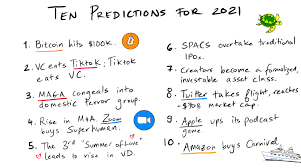 TEN PREDICTIONS FOR 2021
1. Bitcoin hits $100K.
2. VC eats Tiktok; Tiktok
eats VC.
3. MAGA congeals into
domestic terror group.
4. Rise in M&A. Zoom
buys Superhuman.
5. The 3rd "Summer of Love"
leads to rise in VD.
6. SPACS overtake traditional
IPOs.
7. Creators become a formalized,
investable asset class.
8. Twitter takes flight, reaches
market cap.
9. Apple ups its podcast
game.
10. Amazon buys Carnival.